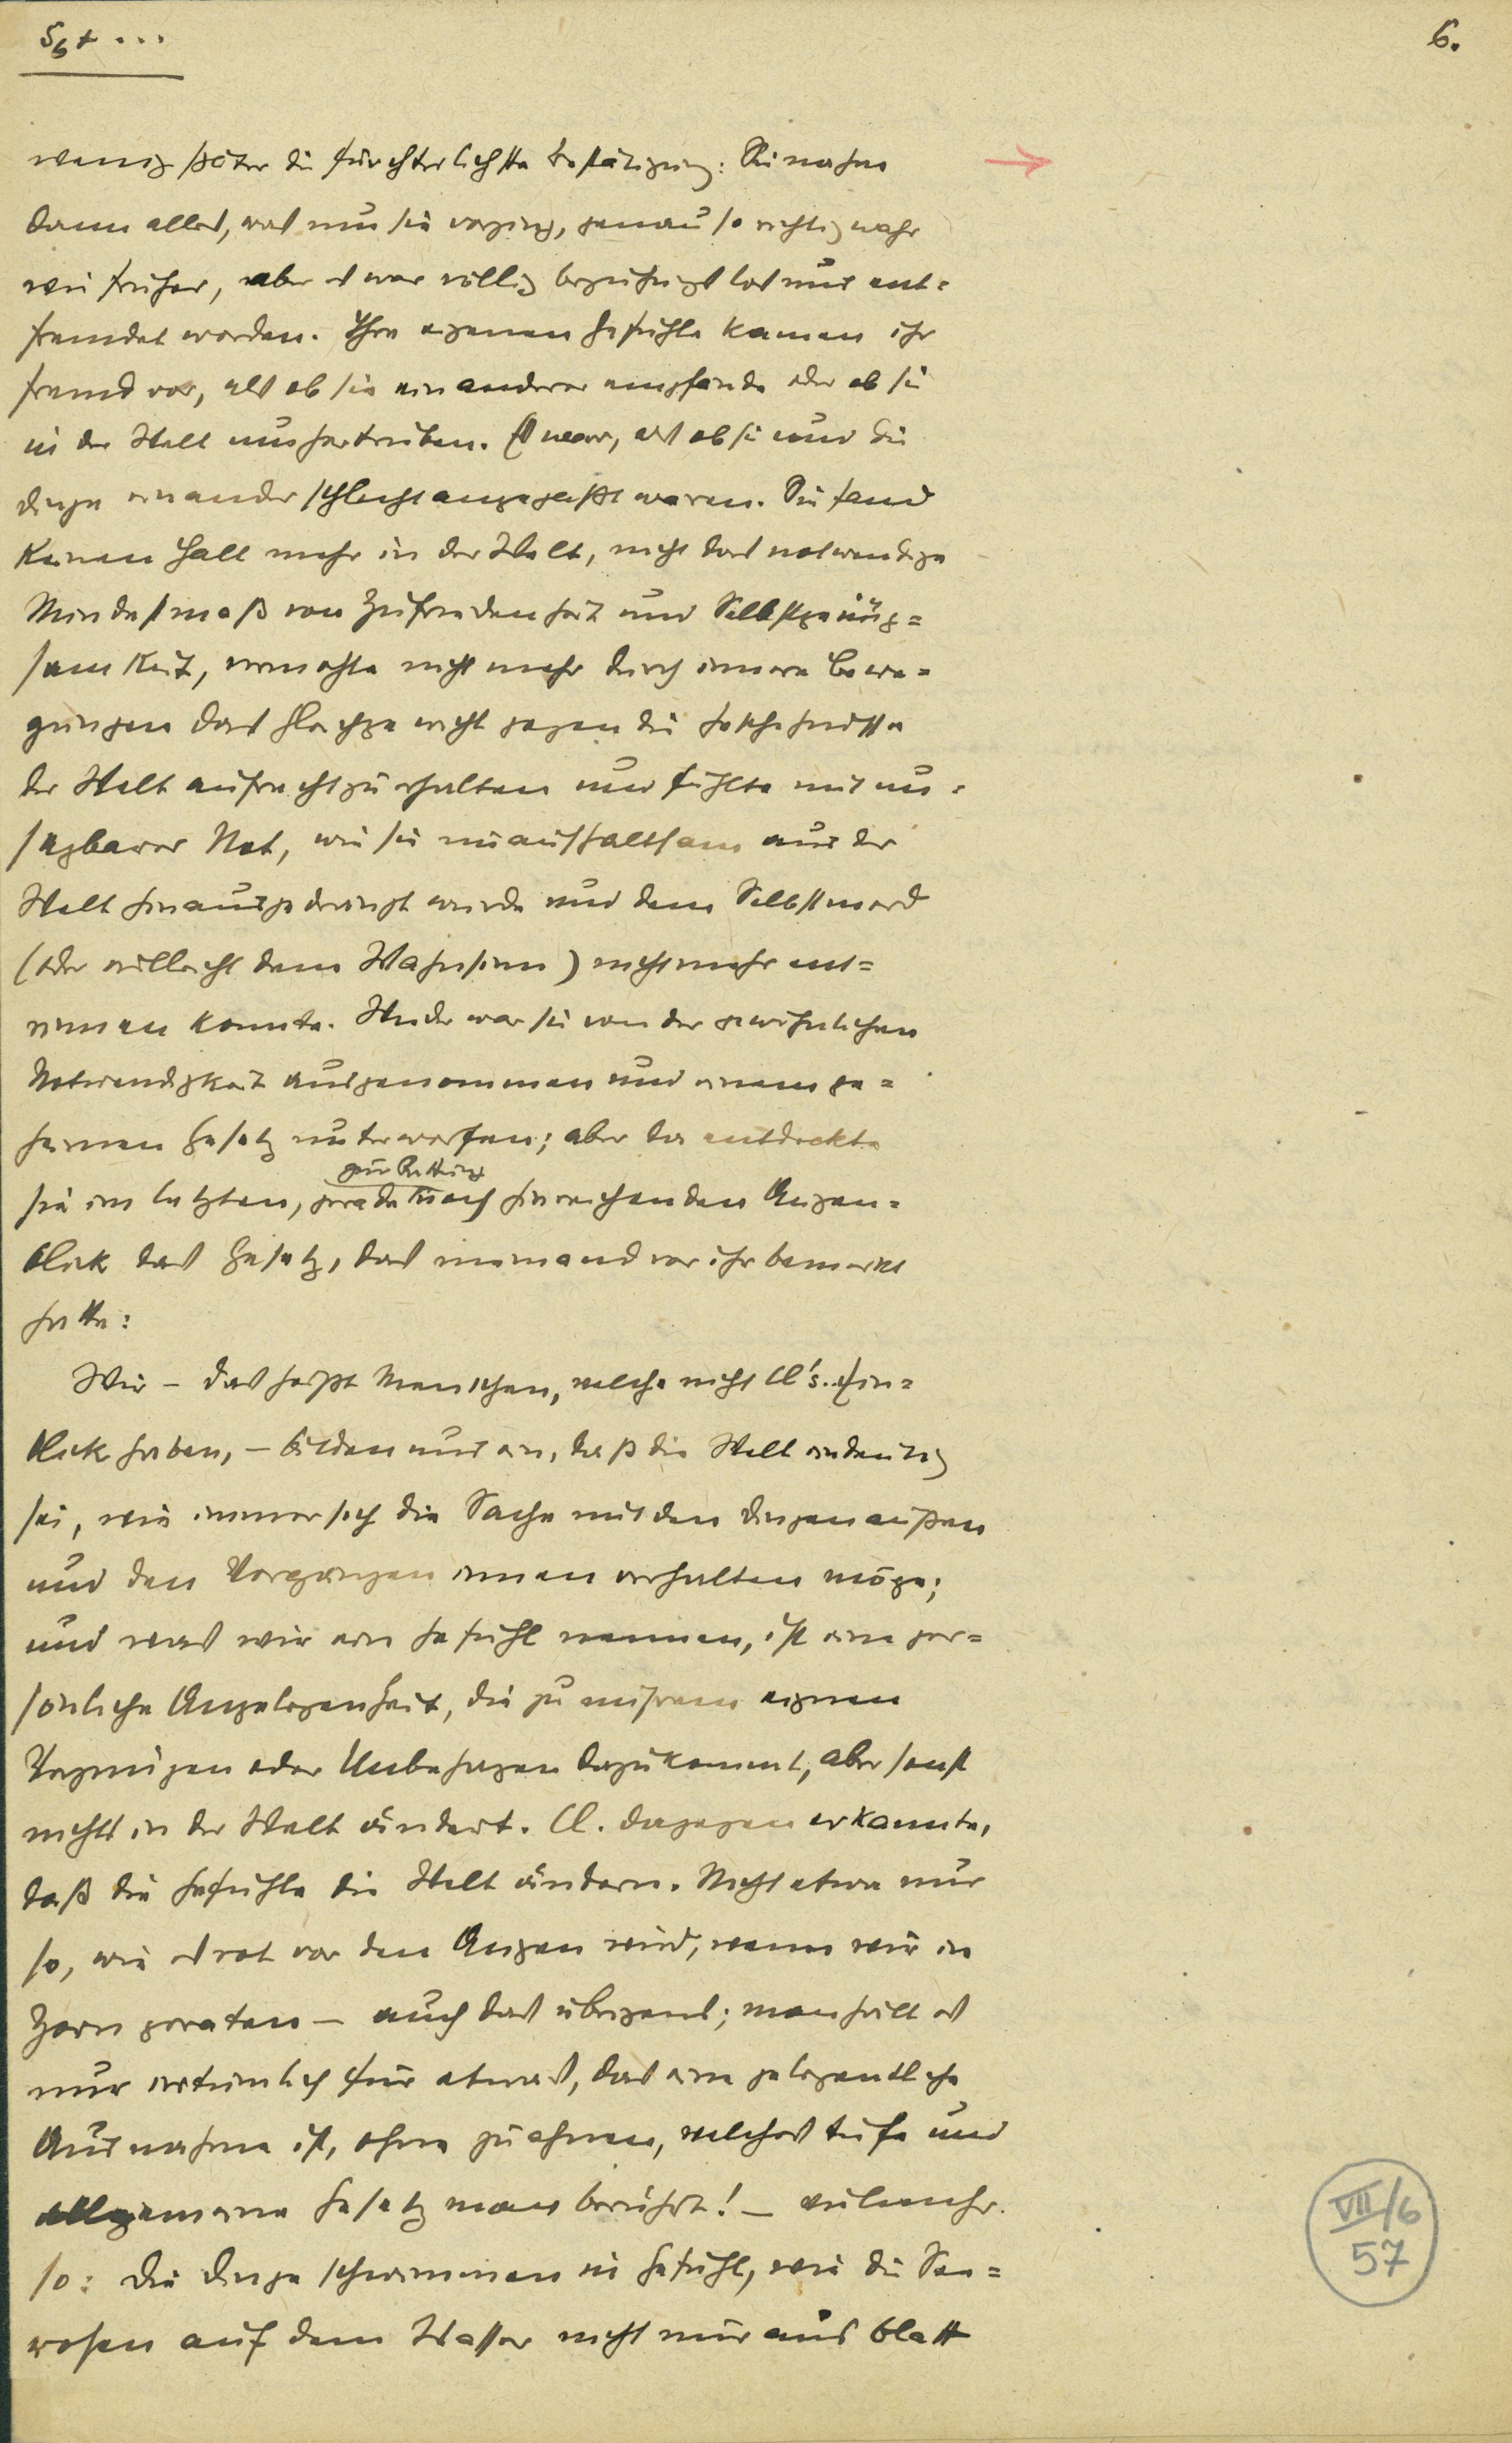 s₅+ ...
6.
wenig später die fürchterlichste Bestätigung: Sie nahm
dann alles, was um sie vorging, genau so richtig wahr
wie früher, aber es war völlig beziehungslos und ent=
fremdet worden. Ihre eigenen Gefühle kamen ihr
fremd vor, als ob sie ein anderer empfände oder ob sie
in der Welt umhertrieben. Es war, als ob sie und die
Dinge einander schlecht angepaßt waren. Sie fand
keinen Halt mehr in der Welt, nicht das notwendige
Mindestmaß von Zufriedenheit und Selbstgenüg=
samkeit, vermochte nicht mehr durch innere Bewe=
gungen das Gleichgewicht gegen die Geschehnisse
der Welt aufrechtzuerhalten und fühlte mit un=
sagbarer Not, wie sie unaufhaltsam aus der
Welt hinausgedrängt wurde und dem Selbstmord
(oder vielleicht dem Wahnsinn) nicht mehr ent=
rinnen konnte. Wieder war sie von der gewöhnlichen
Notwendigkeit ausgenommen und einem ge=
heimen Gesetz unterworfen; aber da entdeckte
zur Rettung
sie im letzten, gerade noch hinreichenden Augen=
blick das Gesetz, das niemand vor ihr bemerkt
hatte:
Wir – das heißt Menschen, welche nicht Cl's. Ein=
blick haben, – bilden uns ein, daß die Welt eindeutig
sei, wie immer sich die Sache mit den Dingen außen
und den Vorgängen innen verhalten möge;
und was wir ein Gefühl nennen, ist eine per=
sönliche Angelegenheit, die zu unserem eigenen
Vergnügen oder Unbehagen dazukommt, aber sonst
nichts in der Welt ändert. Cl. dagegen erkannte,
daß die Gefühle die Welt ändern. Nicht etwa nur
so, wie es rot vor den Augen wird, wenn wir in
Zorn geraten – auch das übrigens; man hält es
nur irrtümlich für etwas, das eine gelegentliche
Ausnahme ist, ohne zu ahnen, welches tiefe und
allgemeine Gesetz man berührt! – vielmehr
so: die Dinge schwimmen in Gefühl, wie die See=
rosen auf dem Wasser nicht nur aus Blatt
VII/6
57